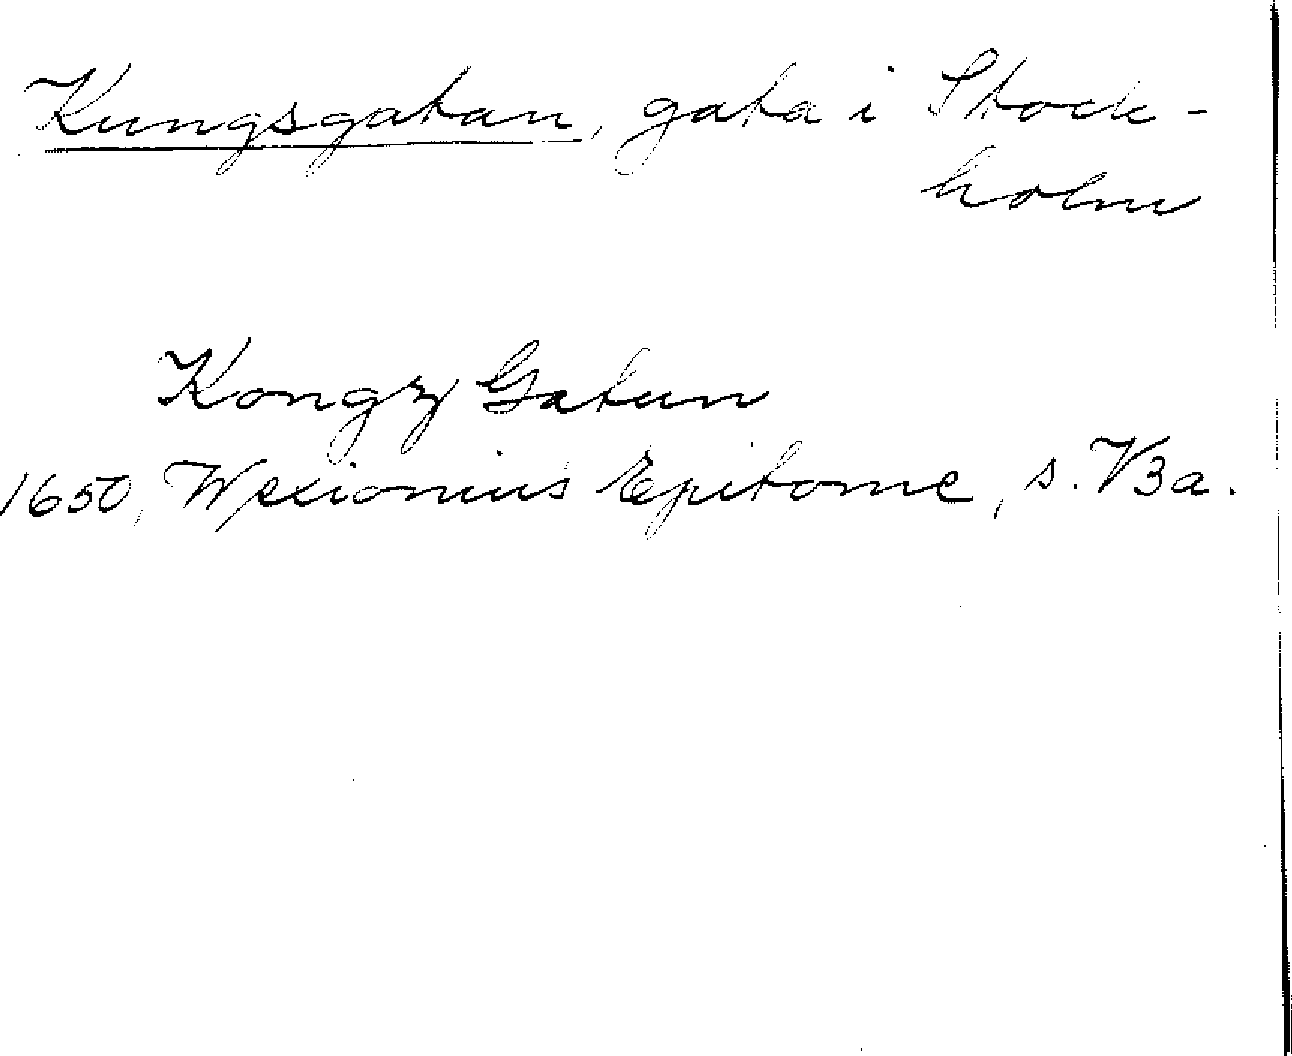 Kungsgatan, gata i Stock-
holm
Kongz Gatun
1650, Wexionius Epitome, s. V3a.